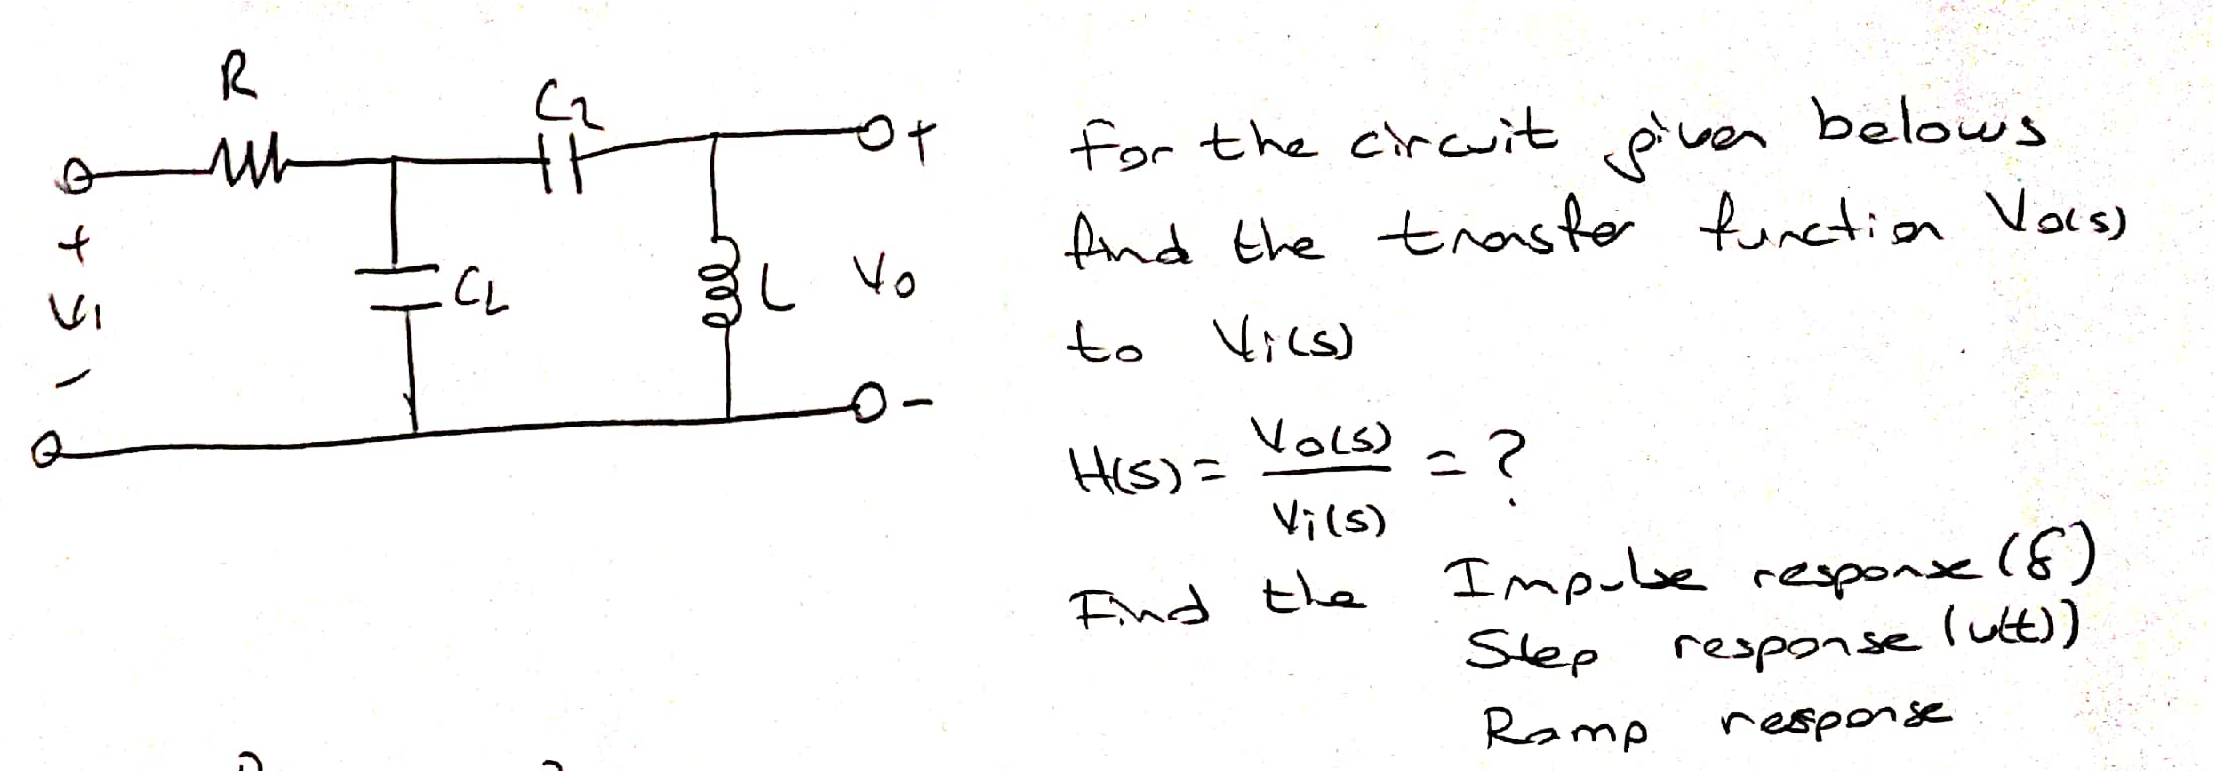 R
C2
+
For the circuit given belows
find the transfer function Vo(s)
+
Vi
-
CL
L
Vo
to Vi(s)
-
H(s) = Vo(s) / Vi(s) = ?
Find the Impulse response (δ)
Step response (u(t))
Ramp response